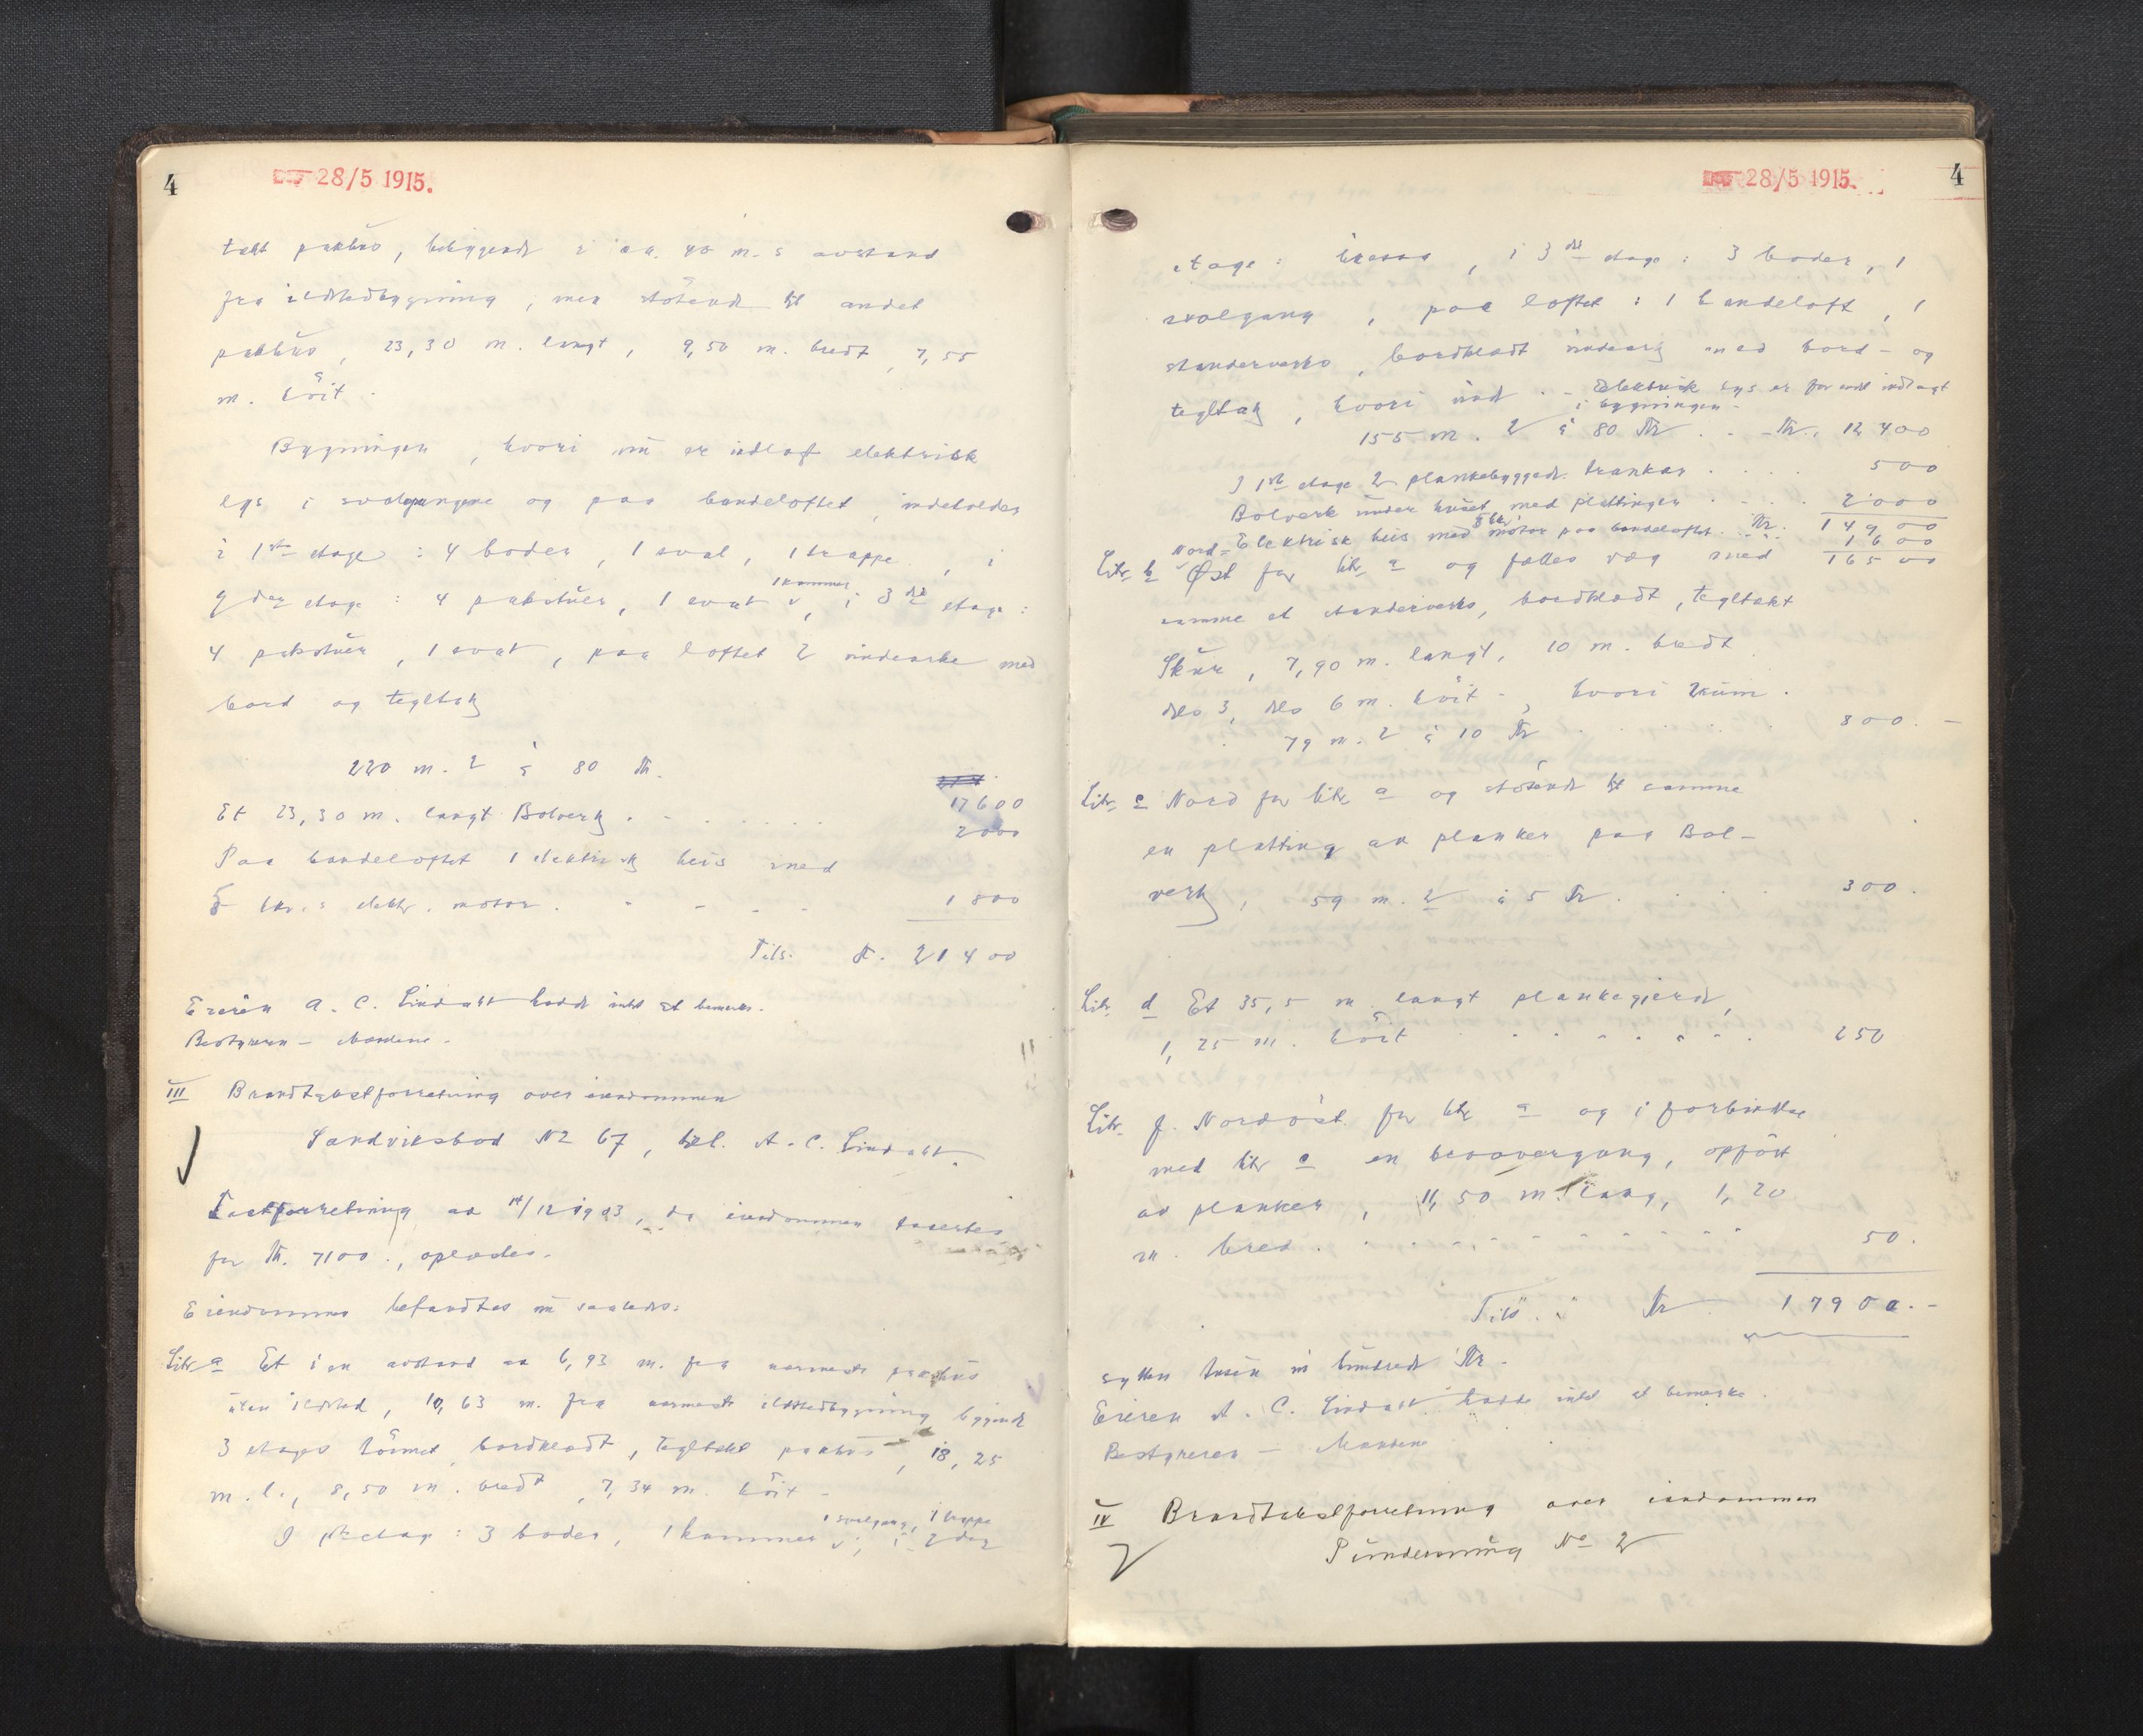 4
28/5 1915.
takt pakhus, beliggende i ca. 40 m.s avstand
fra ildstedbygning, men stötende til andet
pakhus, 23,30 m. langt, 9,50 m. bredt, 7,55
m. höit.
Bygningen, hvori nu er indlagt elektrisk
lys i svalgangene og paa handeloftet, indeholder
i 1ste etage: 4 boder, 1 sval, 1 trappe, i
2den etage: 4 pakstuer, 1 sval, 1 kammer, i 3die etage:
4 pakstuer, 1 sval, paa loftet 2 vindearke med
bord og tegltak
220 m.2 à 80 Kr.
17600
Et 23,30 m. langt Bolverk . . . . . .
2000
Paa handeloftet 1 elektrisk heis med
5 hk.s elektr. motor . - - - -
1800
Tils. Kr. 21400
Eieren A. C. Lindahl hadde intet at bemerke.
Bestyreren - Maskene.
III Brandtakstforretning over eiendommen
Sandviksbod No 67, bel. A. C. Lindahl.
Takstforretning av 14/12 1903, da eiendommen taxertes
for Kr. 7100., oplæstes.
Eiendommen befandtes nu saaledes:
Litr a Et i en avstand av 6,93 m. fra nærmeste pakhus
uten ildsted, 10,63 m. fra nærmeste ildstedbygning liggende
3 etages tömret, bordklædt, tegltakt pakhus, 18,25
m. l., 8,50 m. bredt, 7,34 m. höit -
I 1ste etage: 3 boder, 1 kammer, 1 svalgang, 1 trappe, i 2den
28/5 1915.
4
etage: , i 3die etage: 3 boder, 1
svalgang, paa loftet: 1 handeloft, 1
standerverks, bordklædt vindeark med bord- og
tegltak, hvori vind . - Elektrisk lys er forøvrig indlagt
i bygningen -
155 m.2 à 80 Kr . . - Kr. 12400
I 1ste etage 2 plankebyggede trankar . . . .
500
Bolverk under huset med plattinger - - - .
2000
Kr. 14900
Elektrisk heis med 5 hk. motor paa handeloftet . . .
1600
16500
Litr b Nord-Øst for litr a og fælles væg med
samme et standerverks, bordklædt, tegltakt
Skur, 7,90 m. langt, 10 m. bredt
dels 3, dels 6 m. höit -, hvori rum.
79 m.2 à 10 Kr . . . . .
800. -
Litr c Nord for litr a og stötende til samme
en platting av planker paa Bol-
verk, 59 m.2 à 5 Kr. . . . .
300.
Litr d Et 35,5 m. langt plankegjerde,
1,25 m. höit . . . . . . .
250
Litr f. Nordöst for litr a og i forbindelse
med litr c en broovergang, opfört
av planker, 11,50 m. lang, 1,20
m. bred . . . . . . . . . .
50.
Tils. Kr 17900. -
sytten tusen ni hundrede Kr.
Eieren A. C. Lindahl hadde intet at bemerke.
Bestyreren - Maskene
IV Brandtakstforretning over eiendommen
No 2